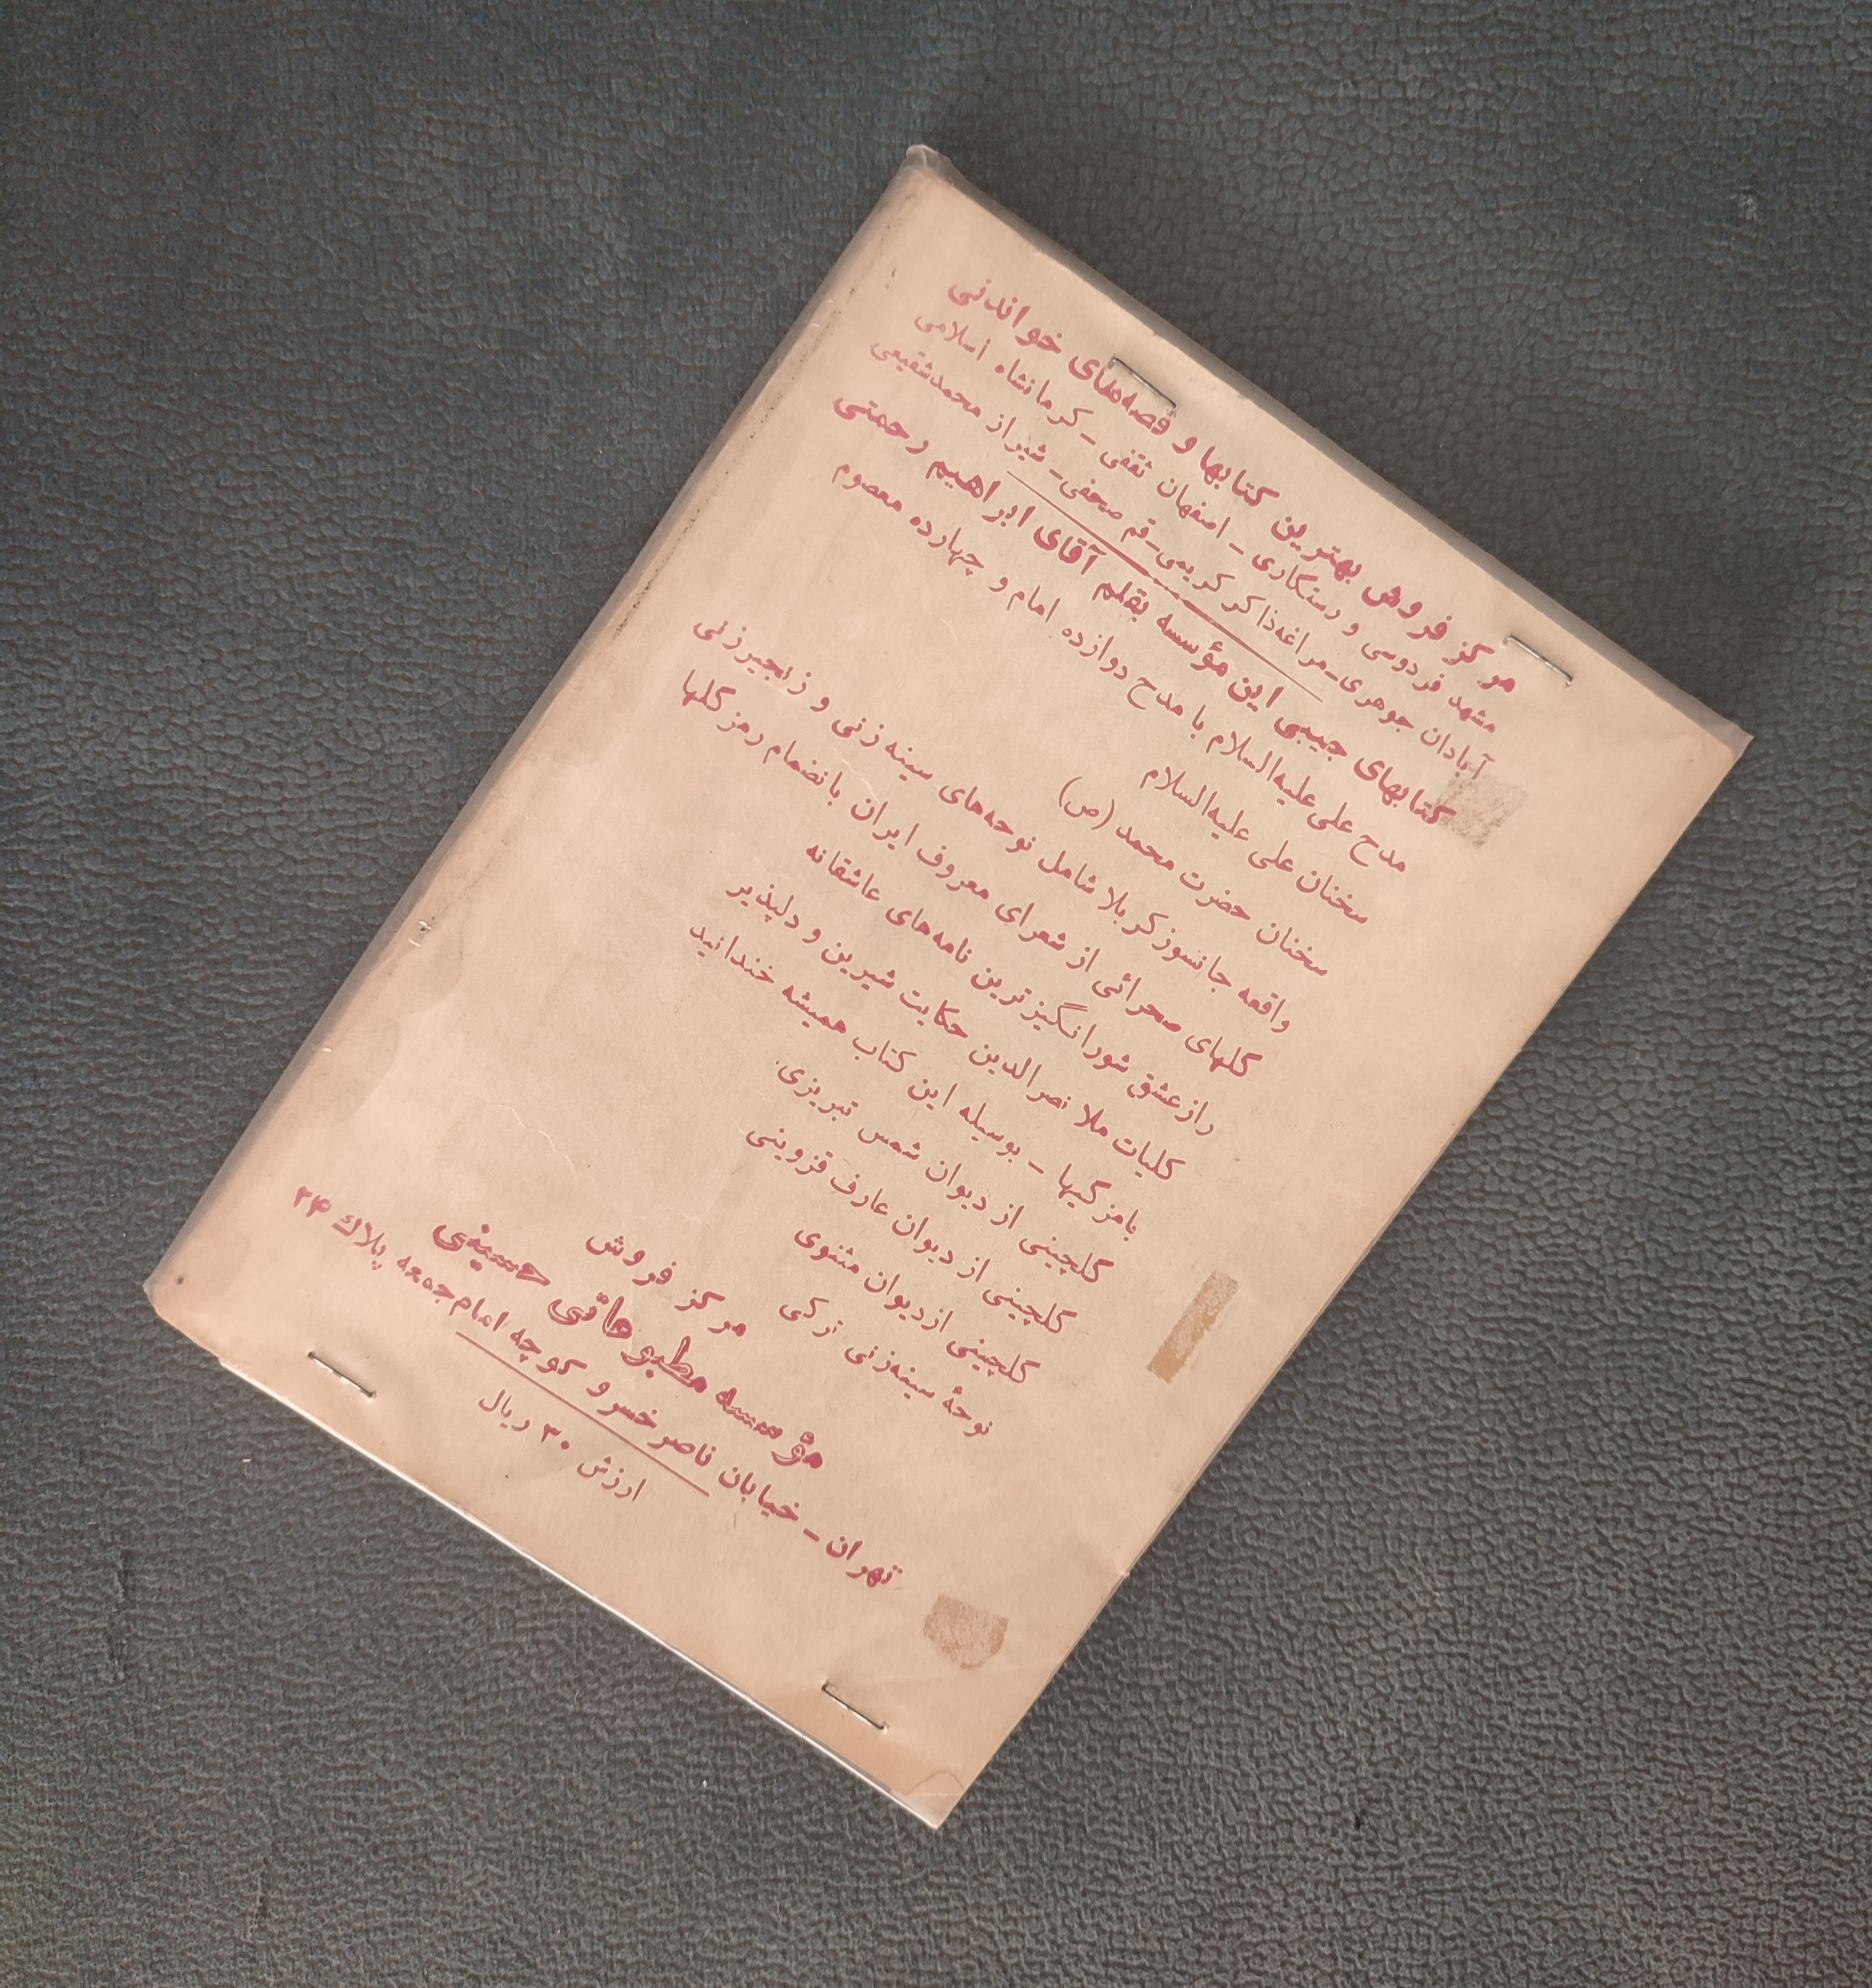 مرکز فروش بهترین کتابها و قصه‌های خواندنی
مشهد فردوسی و رستکاری - اصفهان ثقفی - کرمانشاه اسلامی
آبادان جوهری - مراغه ذاکر کریمی - قم صحفی - شیراز محمد شفیعی
کتابهای جیبی این مؤسسه بقلم آقای ابراهیم رحمتی
مدح علی علیه‌السلام با مدح دوازده امام و چهارده معصوم
سخنان علی علیه‌السلام
سخنان حضرت محمد (ص)
واقعه جانسوز کربلا شامل نوحه‌های سینه زنی و زنجیر زنی
گلهای صحرائی از شعرای معروف ایران بانضمام رمز گلها
راز عشق شورانگیز ترین نامه‌های عاشقانه
کلیات ملا نصرالدین حکایت شیرین و دلپذیر
بامزگیها - بوسیله این کتاب همیشه خندانید
گلچینی از دیوان شمس تبریزی
گلچینی از دیوان عارف قزوینی
گلچینی از دیوان مثنوی
نوحهٔ سینه‌زنی ترکی
مرکز فروش
مؤسسه مطبوعاتی حسینی
تهران - خیابان ناصر خسرو کوچه امام جمعه پلاک ۲۴
ارزش ۳۰ ریال